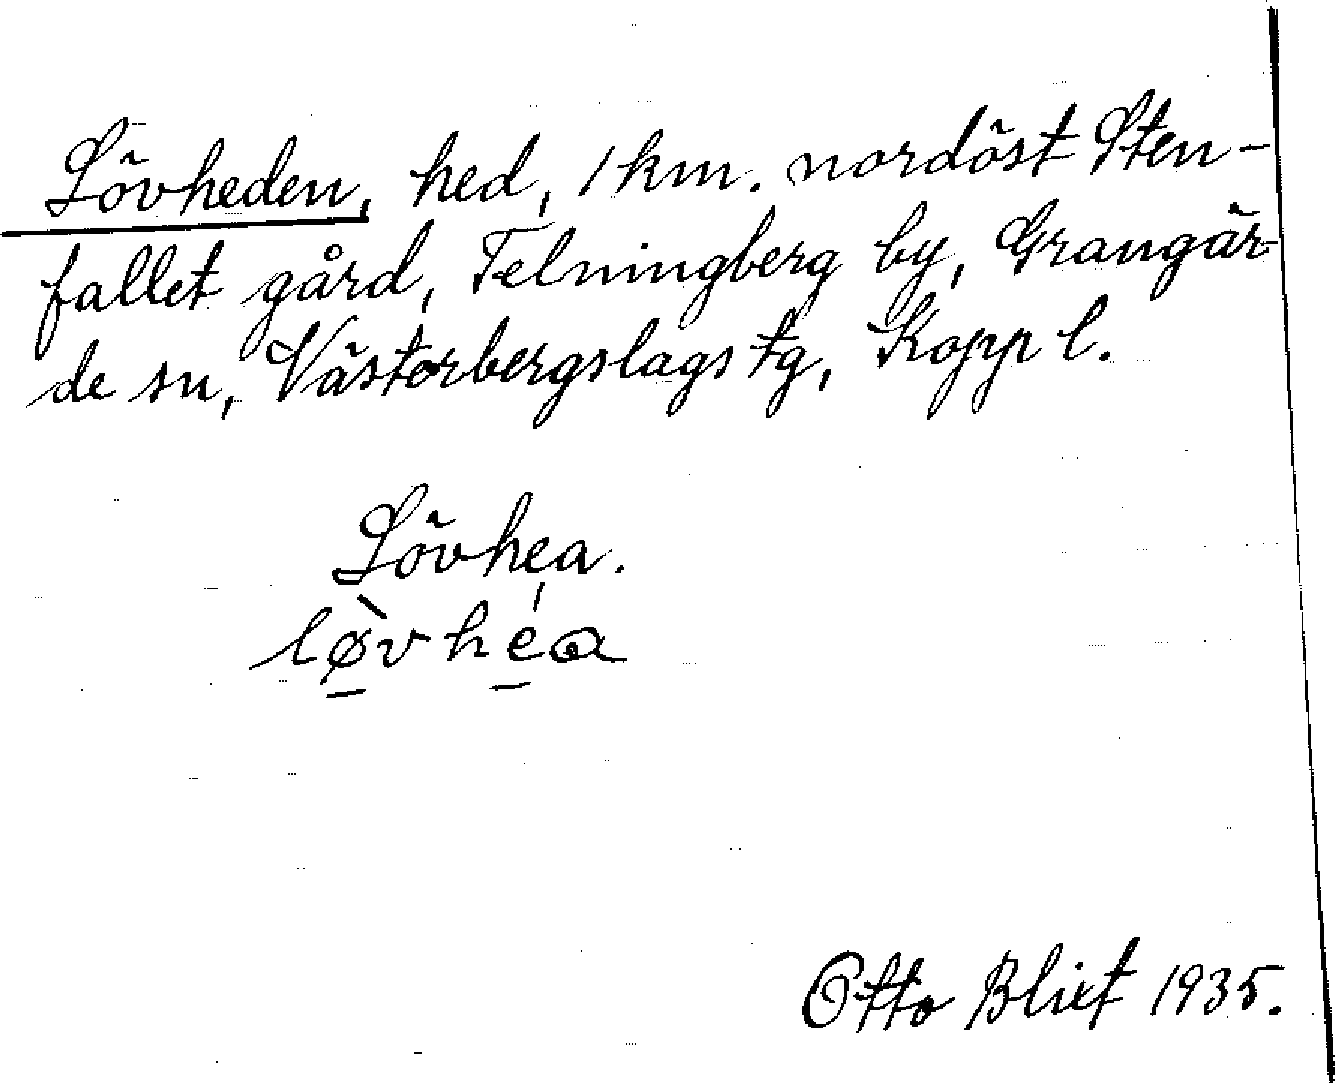 Lövheden, hed, 1 km. nordöst Sten-
fallet gård, Telningberg by, Grangär-
de sn, Västerbergslags tg, Kopp l.
Lövhea.
lø̀vhéa
Otto Blixt 1935.